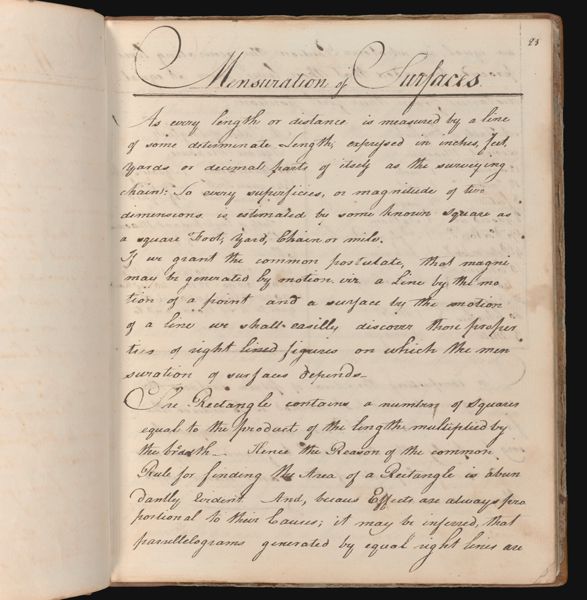 23
Mensuration of Surfaces
As every length or distance is measured by a line
of some determinate Length, expressed in inches, feet,
Yards or decimal parts of itself as the surveying
chain: So every superficies, or magnitude of two
dimensions is estimated by some known Square as
a square Foot, Yard, Chain or mile.
If we grant the common postulate, that magni
may be generated by motion viz a line by the mo
tion of a point and a surface by the motion
of a line we shall easilly discover those proper
ties of right lined figures on which the men
suration of surfaces depends
The Rectangle contains a number of squares
equal to the product of the length multiplied by
the Hence the Reason of the common
Rule for finding the Area of a Rectangle is abun
dantly Evident And, becaus Effects are always pro
portional to their Causes; it may be inferred, that
parrellelograms generated by equal right lines are